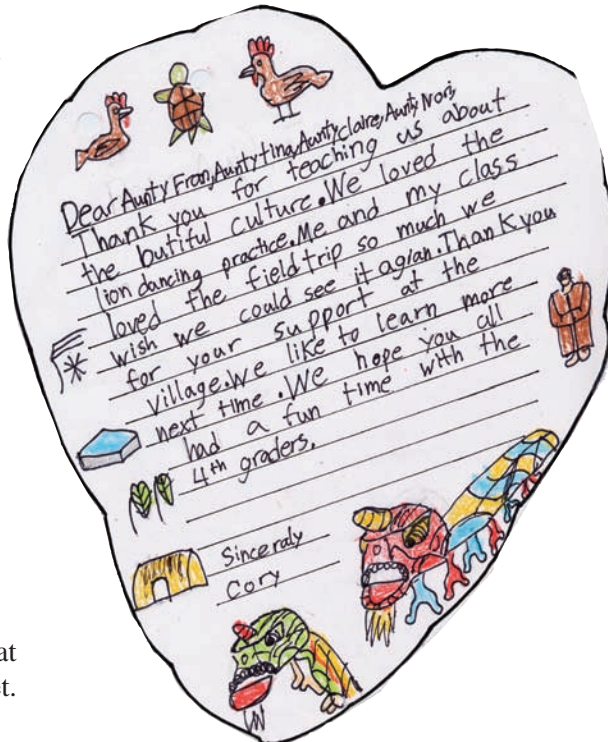 Dear Aunty Fran, Aunty tina, Aunty claire, Aunty Nori,
Thank you for teaching us about
the butiful culture. We loved the
lion dancing practice. Me and my class
loved the field trip so much we
wish we could see it agian. Thank you
for your support at the
village. we like to learn more
next time. We hope you all
had a fun time with the
4th graders.
Sinceraly
Cory
at
et.